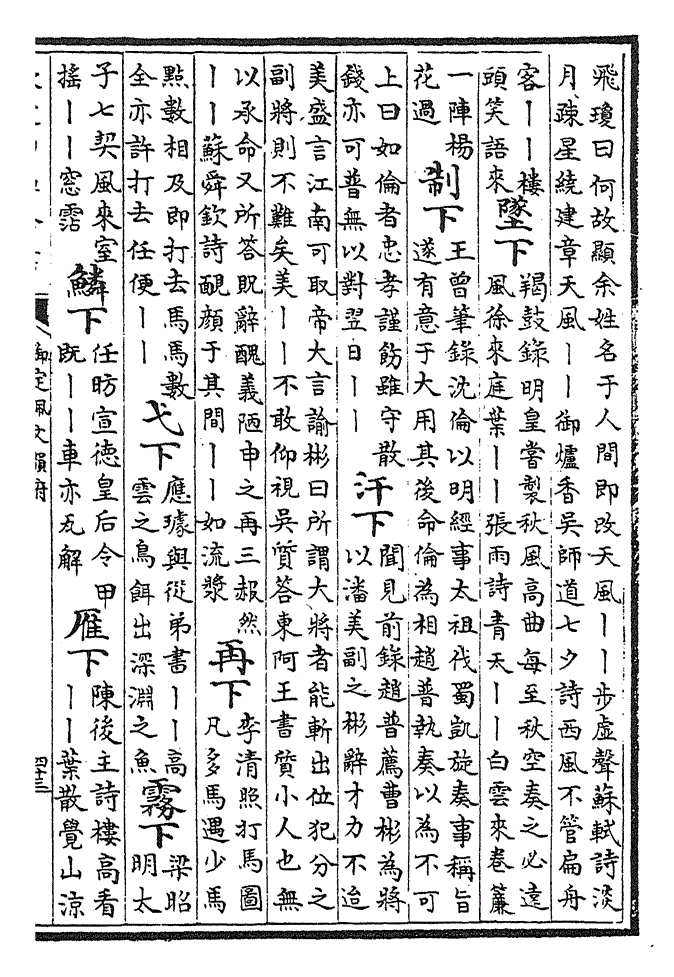 飛瓊曰何故顯余姓名于人間即改天風丨丨步虛聲蘇軾詩淡
月疎星繞建章天風丨丨御爐香吳師道七夕詩西風不管扁舟
客丨丨樓
頭笑語來
墜下
羯鼓錄明皇嘗製秋風高曲每至秋空奏之必遠
風徐來庭葉丨丨張雨詩青天丨丨白雲來卷簾
一陣楊
花過
制下
王曾筆錄沈倫以明經事太祖伐蜀凱旋奏事稱旨
遂有意于大用其後命倫為相趙普執奏以為不可
上曰如倫者忠孝謹飭雖守散
錢亦可普無以對翌日丨丨
汗下
聞見前錄趙普薦曹彬為將
以潘美副之彬辭才力不迨
美盛言江南可取帝大言諭彬曰所謂大將者能斬出位犯分之
副將則不難矣美丨丨不敢仰視吳質答東阿王書質小人也無
以承命又所答貺辭醜義陋申之再三赧然
丨丨蘇舜欽詩靦顏于其間丨丨如流漿
再下
李清照打馬圖
凡多馬遇少馬
點數相及即打去馬馬數
全亦許打去任便丨丨
弋下
應璩與從弟書丨丨高
雲之鳥餌出深淵之魚
霧下
梁昭
明太
子七契風來室
搖丨丨窓霑
鱗下
任昉宣德皇后令甲
既丨丨車亦瓦解
雁下
陳後主詩樓高看
丨丨葉散覺山涼
御定佩文韻府
四十三